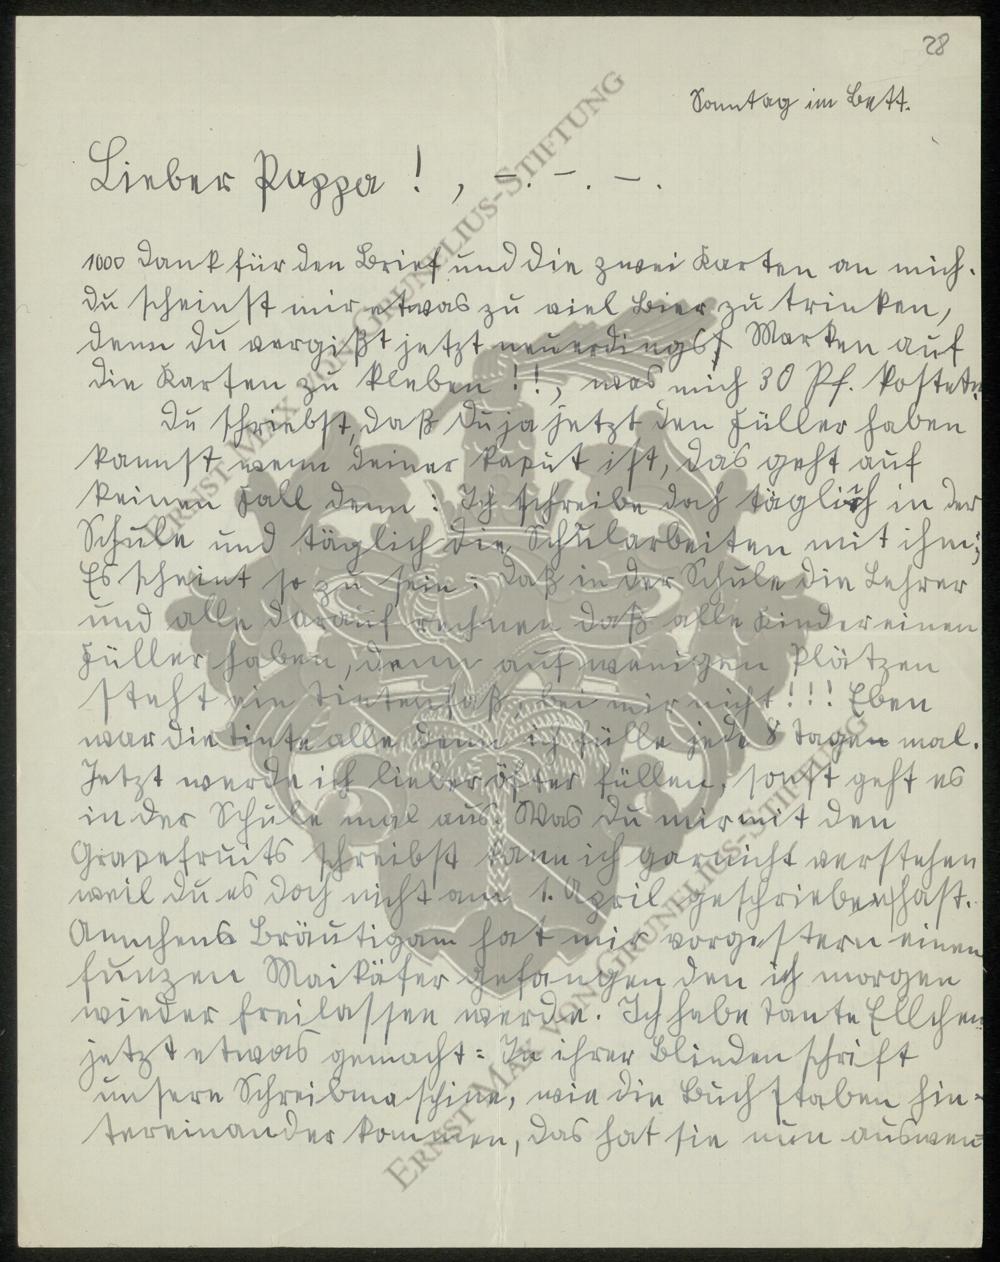 28
Sonntag im Bett.
Lieber Pappa ! , –. –. –.
1000 Dank für den Brief und die zwei Karten an mich.
Du scheinst mir etwas zu viel Bier zu trinken,
denn du vergißt jetzt neuerdings Marken auf
die Karten zu kleben !!, was mich 30 Pf. kostete
Du schriebst, daß du ja jetzt den Füller haben
kannst wenn deiner kaput ist, das geht auf
keinen Fall denn : Ich schreibe doch täglich in der
Schule und täglich die Schularbeiten mit ihm;
Es scheint so zu sein : daß in der Schule die Lehrer
und alle darauf rechnen daß alle Kinder einen
Füller haben, denn auf wenigen Plätzen
steht ein Tintenfaß, bei mir nicht!!! Eben
war die Tinte alle denn ich fülle jede 8 Tagen mal.
Jetzt werde ich lieber öfter füllen, sonst geht es
in der Schule mal aus. Was du mir mit den
Grapefruits schreibst kann ich garnicht verstehen
weil du es doch nicht am 1. April geschrieben hast.
Annchens Bräutigam hat mir vorgestern einen
funzen Maikäfer gefangen den ich morgen
wieder freilassen werde. Ich habe Tante Ellchen
jetzt etwas gemacht: In ihrer Blinden schrift
unsere Schreibmaschine, wie die Buchstaben hin-
tereinander kommen, das hat sie nun auswen-
ERNST MAX VON GRUNELIUS-STIFTUNG
ERNST MAX VON GRUNELIUS-STIFTUNG